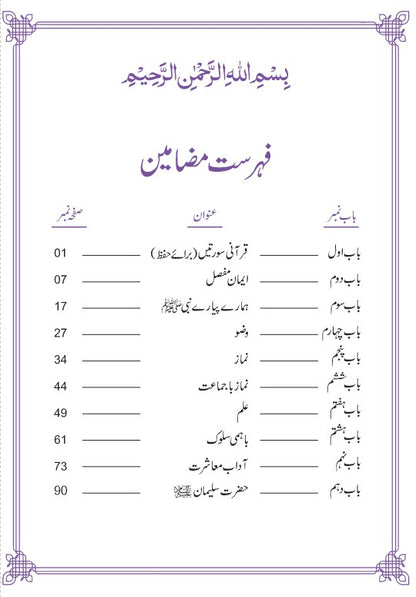 بِسْمِ اللّٰهِ الرَّحْمٰنِ الرَّحِیْمِ
فہرست مضامین
باب نمبر عنوان صفحہ نمبر
باب اول قرآنی سورتیں (برائے حفظ) 01
باب دوم ایمان مفصل 07
باب سوم ہمارے پیارے نبی ﷺ 17
باب چہارم وضو 27
باب پنجم نماز 34
باب ششم نماز باجماعت 44
باب ہفتم علم 49
باب ہشتم باہمی سلوک 61
باب نہم آداب معاشرت 73
باب دہم حضرت سلیمان 90